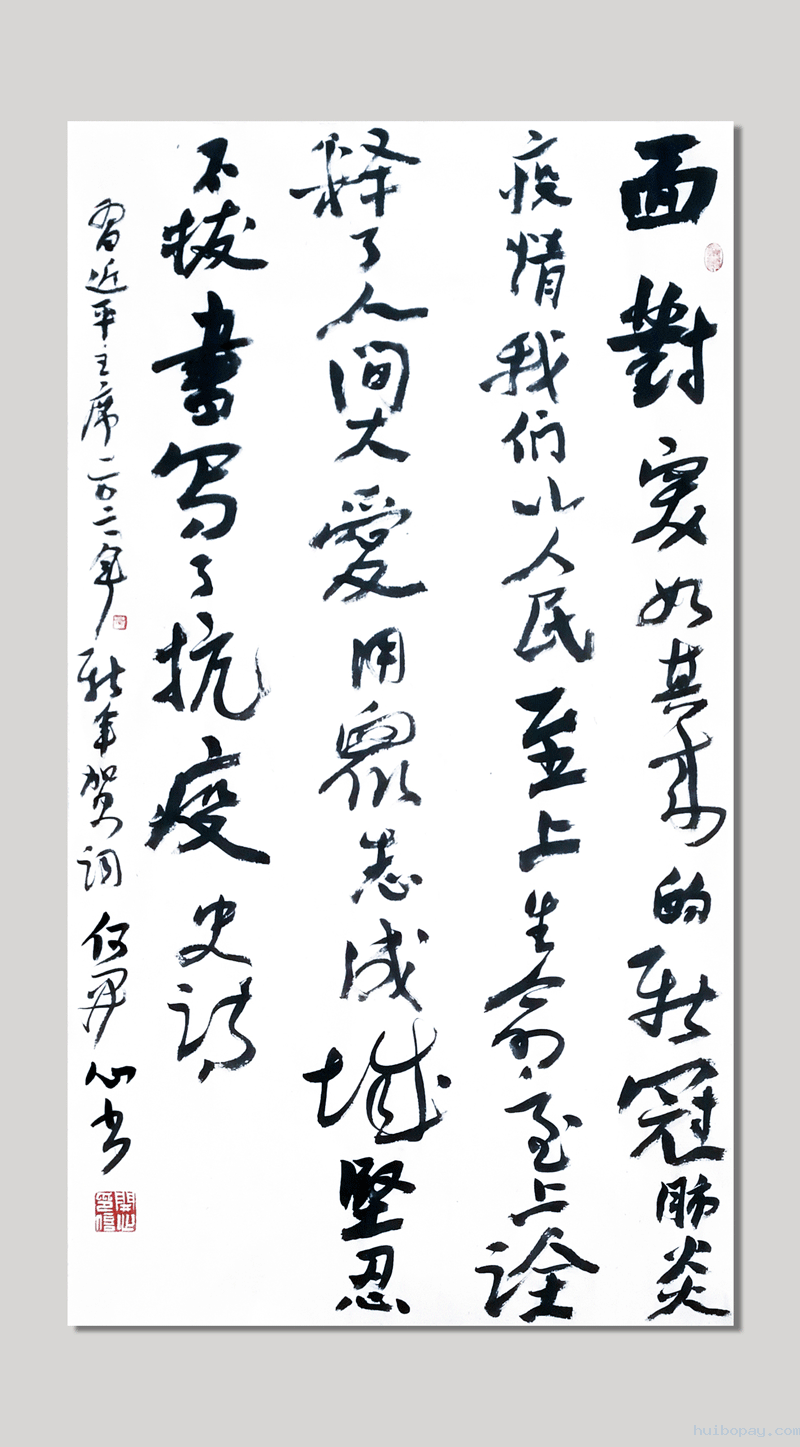 面對突如其来的新冠肺炎
疫情我们以人民至上生命至上诠
释了人间大愛用眾志成城堅忍
不拔書写了抗疫史诗
習近平主席二〇二一年新年贺词 何開心书
開心印信
huibopay.com